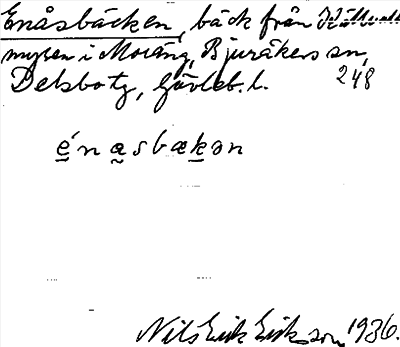 Enåsbäcken, bäck från Källvall
myren i Moräng, Bjuråkers sn,
Delsbo tg, Gävleb. l. 248
é n a s b æ k ə n
Nils Erik Eriksson, 1936.